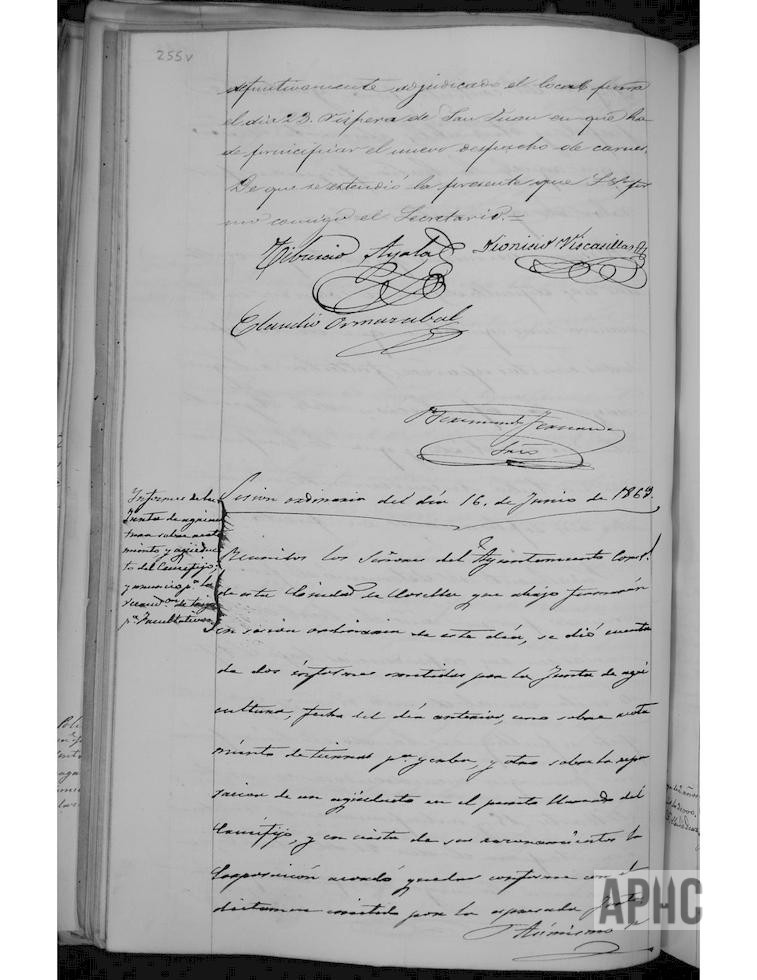 255v
definitivamente adjudicado el local para
el dia 23. vispera de San Juan en que ha
de principiar el nuevo despacho de carnes.
De que se estendió la presente que S. Sª fir
mó conmigo el Secretario.=
Tiburcio Ayala Dionicio Viscasillas
Claudio Ormazabal
Fernandez
Srio
Informes de la
Junta de agricul
tura sobre acota
miento y agüeduc
to del Crucifijo,
y anuncio pª la
recaudon de
pª Facultativos.
Sesion ordinaria del día 16. de Junio de 1869.
Reunidos los Señores del Ayuntamiento Const.
de esta Ciudad de que abajo firmarán
en sesion ordinaria de este día, se dió cuenta
de dos informes emitidos por la Junta de agri
cultura, fecha del día anterior, uno sobre acota
miento de tierras pª y otro sobre la repa
racion de un agüeducto en el punto llamado del
Crucifijo, y con vista de sus razonamientos la
Corporación acordó quedar conforme con el
dictamen emitido por la espresada Junta
Asimismo
APHC